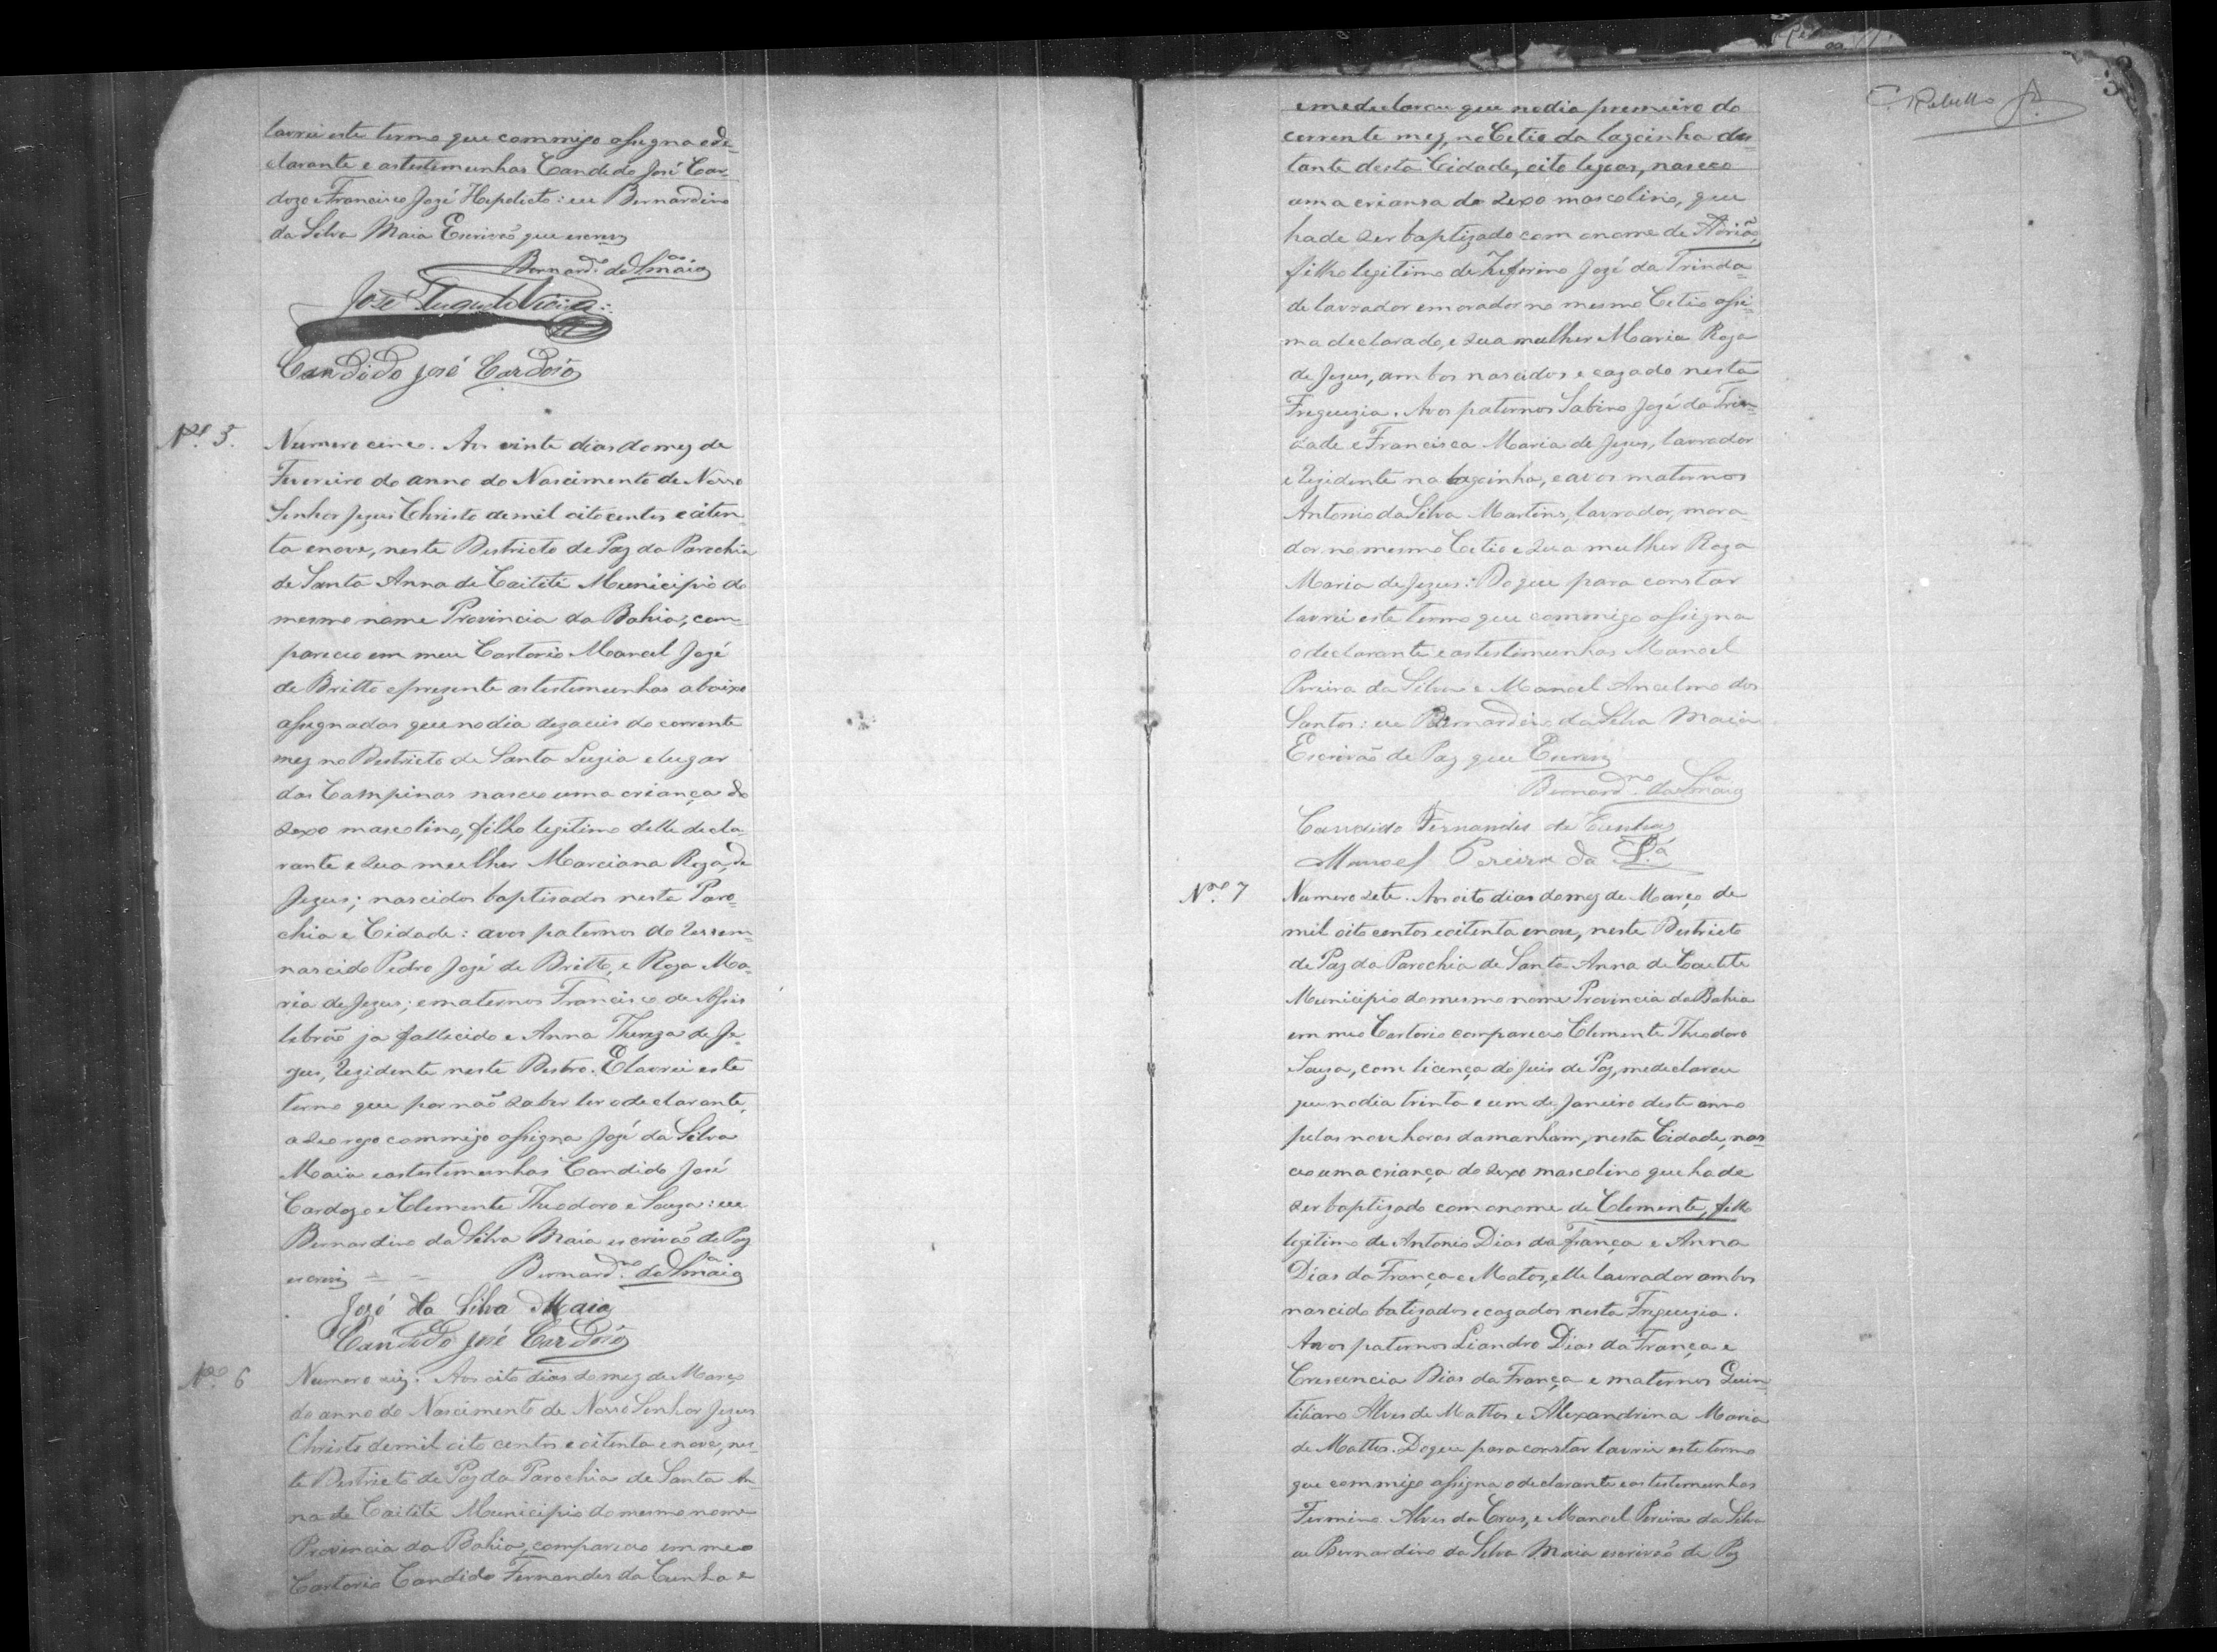 lavrei este termo que commigo assigna o de-
clarante e as testemunhas Candido José Car-
dozo e Francisco Jozé Hepolicto: eu Bernardino
da Silva Maia Escrivaõ que escrevy
Bernard.no da S.a Maia
José Augusto Vieira
Candido José Cardoso
N.º 5.
Numero cinco. Aos vinte dias do mez de
Fevereiro do anno do Nascimento de Nosso
Senhor Jezus Christo de mil oito centos e oiten-
ta e nove, neste Districto de Paz da Parochia
de Santa Anna de Caitité Municipio do
mesmo nome Provincia da Bahia, com-
pareceo em meu Cartorio Manoel Jozé
de Britto e prezente as testemunhas abaixo
assignadas que no dia dezaceis do corrente
mez no Districto de Santa Luzia e lugar
das Campinas nasceo uma criança do
sexo mascolino, filho legitimo delle decla-
rante e sua mulher Marciana Roza de
Jezus; nascidos baptisados nesta Paro-
chia e Cidade: avos paternos do ressem-
nascido Pedro Jozé de Britto, e Roza Ma-
ria de Jezus; e maternos Francisco de Assis
lebrão ja fallecido e Anna Thereza de Je-
zus, rezidente neste Destro. E lavrei este
termo que por naõ saber ler o declarante,
a seo rogo commigo assigna Jozé da Silva
Maia e as testemunhas Candido José
Cardozo e Clemente Theodoro e Souza: eu
Bernardino da Silva Maia escrivaõ de Paz
escrevy
Bernard.no da S.a Maia
Jozé da Silva Maia
Candido José Cardoso
N.º 6
Numero seiz. Aos oito dias do mez de Março
do anno do Nascimento de Nosso Senhor Jezus
Christo de mil oito centos e oitenta e nove, nes-
te Districto de Paz da Parochia de Santa An-
na de Caitité Municipio do mesmo nome
Provincia da Bahia, compareceo em meo
Cartorio Candido Fernandes da Cunha e
3
C. Rebello Jr.
e me declarou que no dia premeiro do
corrente mez, no Citio da lagoinha dis-
tante desta Cidade, oito legoas, nasceo
uma criansa do sexo mascolino, que
hade ser baptizado com o nome de Adriaõ,
filho legitimo de Zeferino Jozé da Trinda-
de lavrador e morador no mesmo Citio assi-
ma declarado, e sua mulher Maria Roza
de Jezus, ambos nascidos e cazado nesta
Freguezia. Avos paternos Sabino Jozé da Trin-
dade e Francisca Maria de Jezus, lavrador
e rezidente na lagoinha, e avos maternos
Antonio da Silva Martins, lavrador, mora-
dor no mesmo Citio e sua mulher Roza
Maria de Jezus: Do que para constar
lavrei este termo que commigo assigna
o declarante e as testemunhas Manoel
Pereira da Silva e Manoel Ancelmo dos
Santos: eu Bernardino da Silva Maia
Escrivaõ de Paz que Escrevy
Bernard.no da S.a Maia
Candido Fernandes da Cunha
Manoel Pereira da S.a
N.º 7
Numero sete. Aos oito dias do mez de Março de
mil oito centos e oitenta e nove, neste Districto
de Paz da Parochia de Santa Anna de Caetité
Municipio do mesmo nome Provincia da Bahia
em meo Cartorio compareceo Clemente Theodoro
e Souza, com licença do Juis de Paz, me declarou
que no dia trinta e um de Janeiro deste anno
pelas nove horas da manham, nesta Cidade, nas-
ceo uma criança do sexo mascolino que hade
ser baptizado com o nome de Clemente, filho
legitimo de Antonio Dias da França e Anna
Dias da França e Matos, elle lavrador ambos
nascido batizados e cazados nesta Freguezia.
Avos paternos Liandro Dias da França e
Crescencia Dias da França e maternos Quin-
tiliano Alves de Mattos e Alexandrina Maria
de Mattos. Do que para constar lavrei este termo
que commigo assigna o declarante e as testemunhas
Fermino Alves da Crus, e Manoel Pereira da Silva
eu Bernardino da Silva Maia escrivaõ de Paz